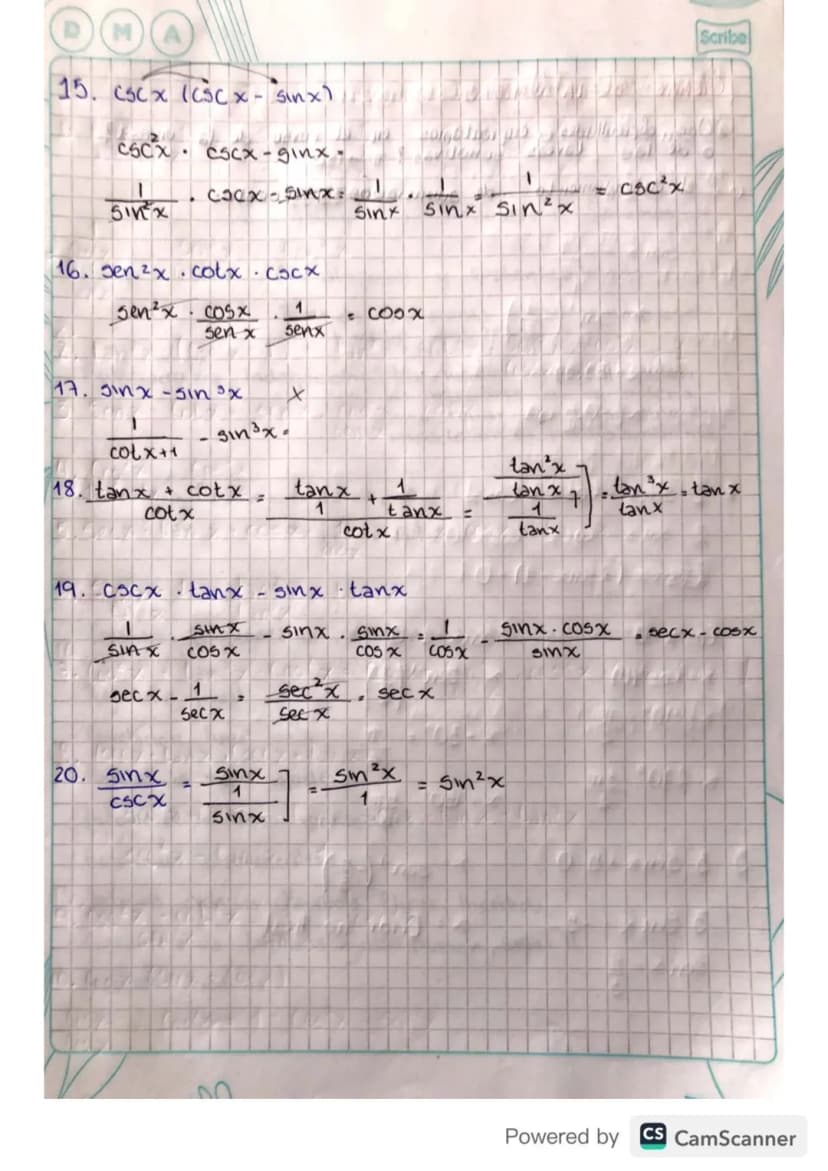 D M A
Scribe
15. csc x (csc x - sinx)
csc²x · cscx - sinx =
1/sin²x · cscx - sinx = 1/sinx · 1/sinx = 1/sin²x = csc²x
16. sen²x · cotx · cscx
sen²x · cosx/senx · 1/senx = cosx
17. sinx - sin³x x
1/cotx+1 - sin³x =
18. tanx + cotx/cotx = tanx/1 + 1/tanx/cotx = tan²x/tanx/1/tanx ] = tan³x/tanx = tanx
19. cscx · tanx - sinx · tanx
1/sinx · sinx/cosx - sinx · sinx/cosx = 1/cosx - sinx · cosx/sinx = secx - cosx
secx - 1/secx = sec²x/secx = secx
20. sinx/cscx = sinx/1/sinx ] = sin²x/1 = sin²x
Powered by CS CamScanner